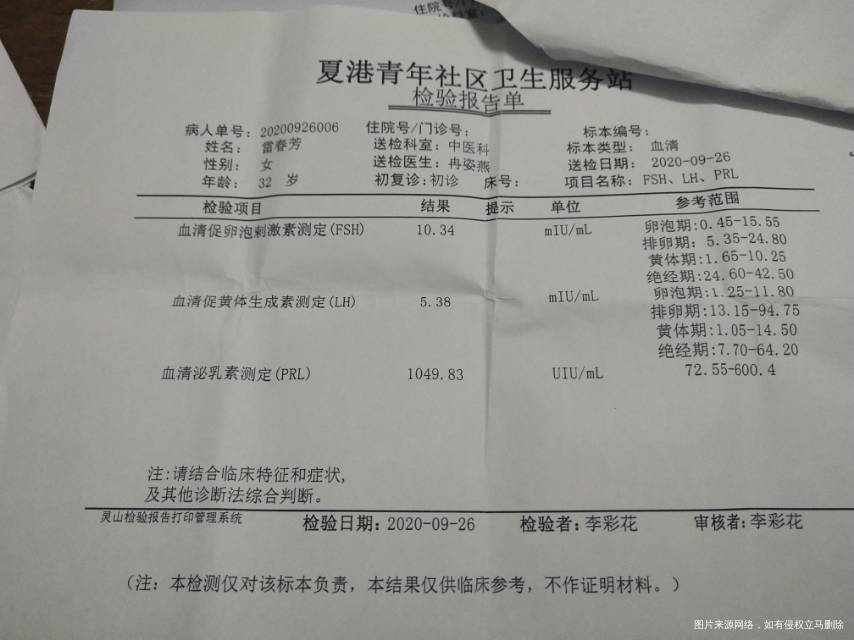 夏港青年社区卫生服务站
检验报告单
病人单号: 20200926006 住院号/门诊号: 标本编号:
姓名: 雷春芳 送检科室: 中医科 标本类型: 血清
性别: 女 送检医生: 冉姿燕 送检日期: 2020-09-26
年龄: 32 岁 初复诊:初诊 床号: 项目名称: FSH、LH、PRL
检验项目 结果 提示 单位 参考范围
血清促卵泡刺激素测定(FSH) 10.34 mIU/mL 卵泡期:0.45-15.55
排卵期: 5.35-24.80
黄体期:1.65-10.25
绝经期:24.60-42.50
血清促黄体生成素测定(LH) 5.38 mIU/mL 卵泡期:1.25-11.80
排卵期:13.15-94.75
黄体期:1.05-14.50
绝经期:7.70-64.20
血清泌乳素测定(PRL) 1049.83 UIU/mL 72.55-600.4
注:请结合临床特征和症状,
及其他诊断法综合判断。
灵山检验报告打印管理系统 检验日期: 2020-09-26 检验者: 李彩花 审核者: 李彩花
(注: 本检测仅对该标本负责, 本结果仅供临床参考, 不作证明材料。)
图片来源网络，如有侵权立马删除